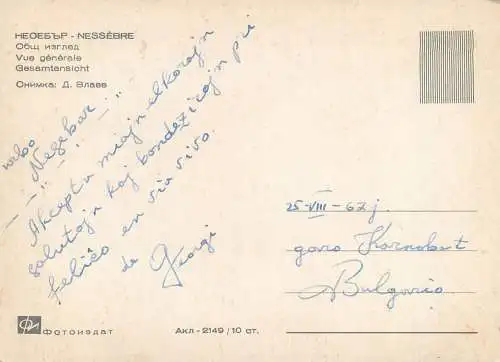 НЕСЕБЪР - NESSÈBRE
Общ изглед
Vue générale
Gesamtansicht
Снимка: Д. Влаев
urbo
Nesebar
Akceptu miajn elkorajn
salutojn kaj bondezirojn pri
feliĉo en via vivo.
de Georgi
25-VIII-67 j.
garo Karnobat
Bulgario
Фотоиздат
Акл-2149/10 ст.